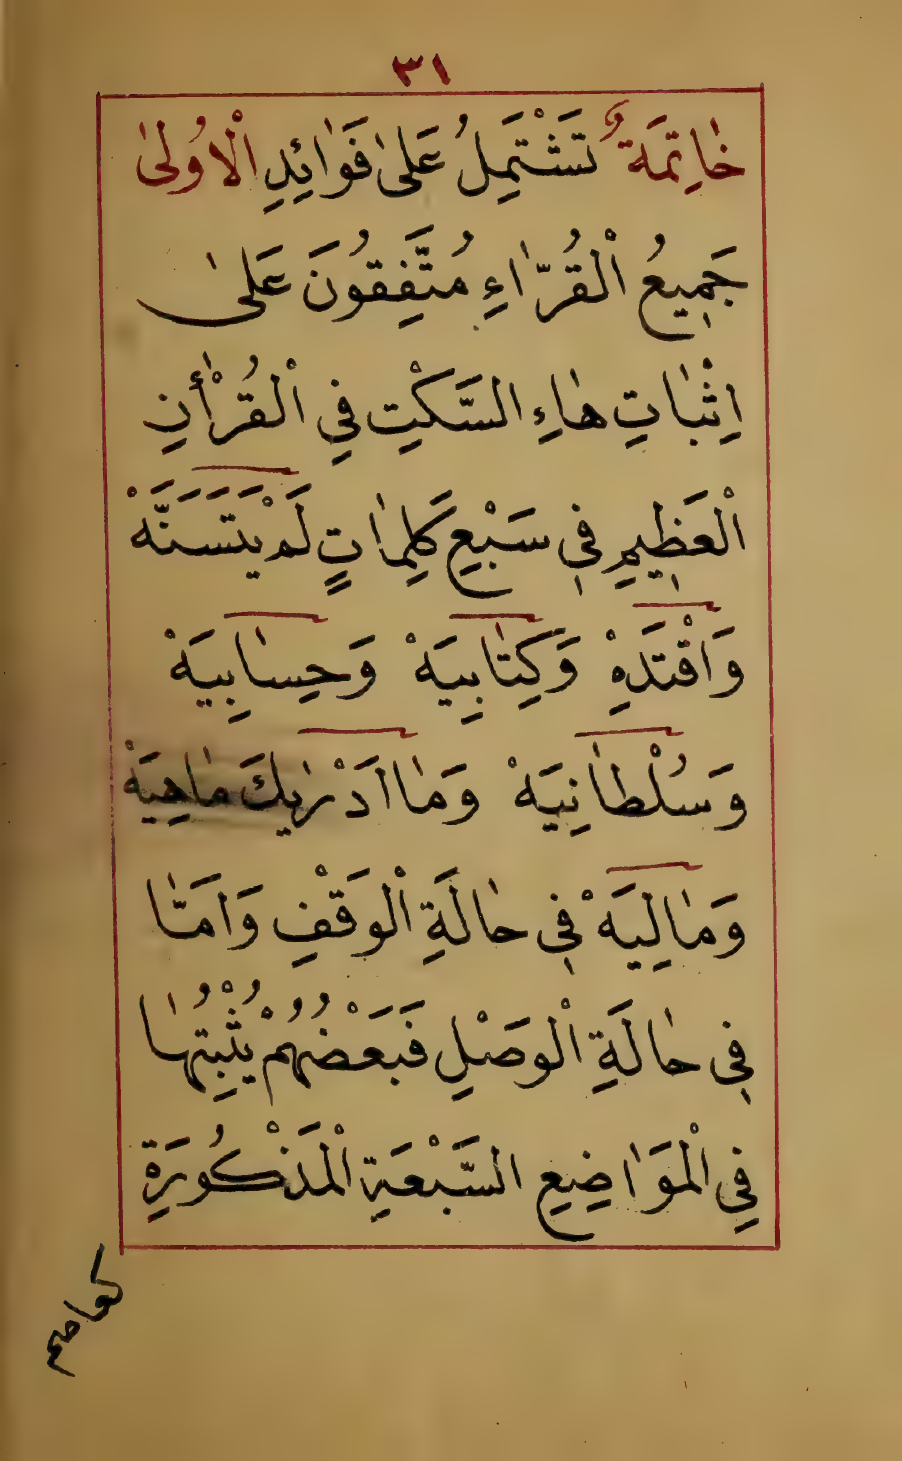 ٣١
خَاتِمَةٌ تَشْتَمِلُ عَلىٰ فَوَائِدِ الْاُولىٰ
جَمِيعُ الْقُرَّاءِ مُتَّفِقُونَ عَلىٰ
اِثْبَاتِ هَاءِ السَّكْتِ فِي الْقُرْأٰنِ
الْعَظِيمِ فِي سَبْعِ كَلِمَاتٍ لَمْ يَتَسَنَّهْ
وَاقْتَدِهْ وَكِتَابِيَهْ وَحِسَابِيَهْ
وَسُلْطَانِيَهْ وَمَا اَدْرٰيكَ مَاهِيَهْ
وَمَالِيَهْ فِي حَالَةِ الْوَقْفِ وَاَمَّا
فِي حَالَةِ الْوَصْلِ فَبَعْضُهُمْ يُثْبِتُهَا
فِي الْمَوَاضِعِ السَّبْعَةِ الْمَذْكُورَةِ
كعاصم